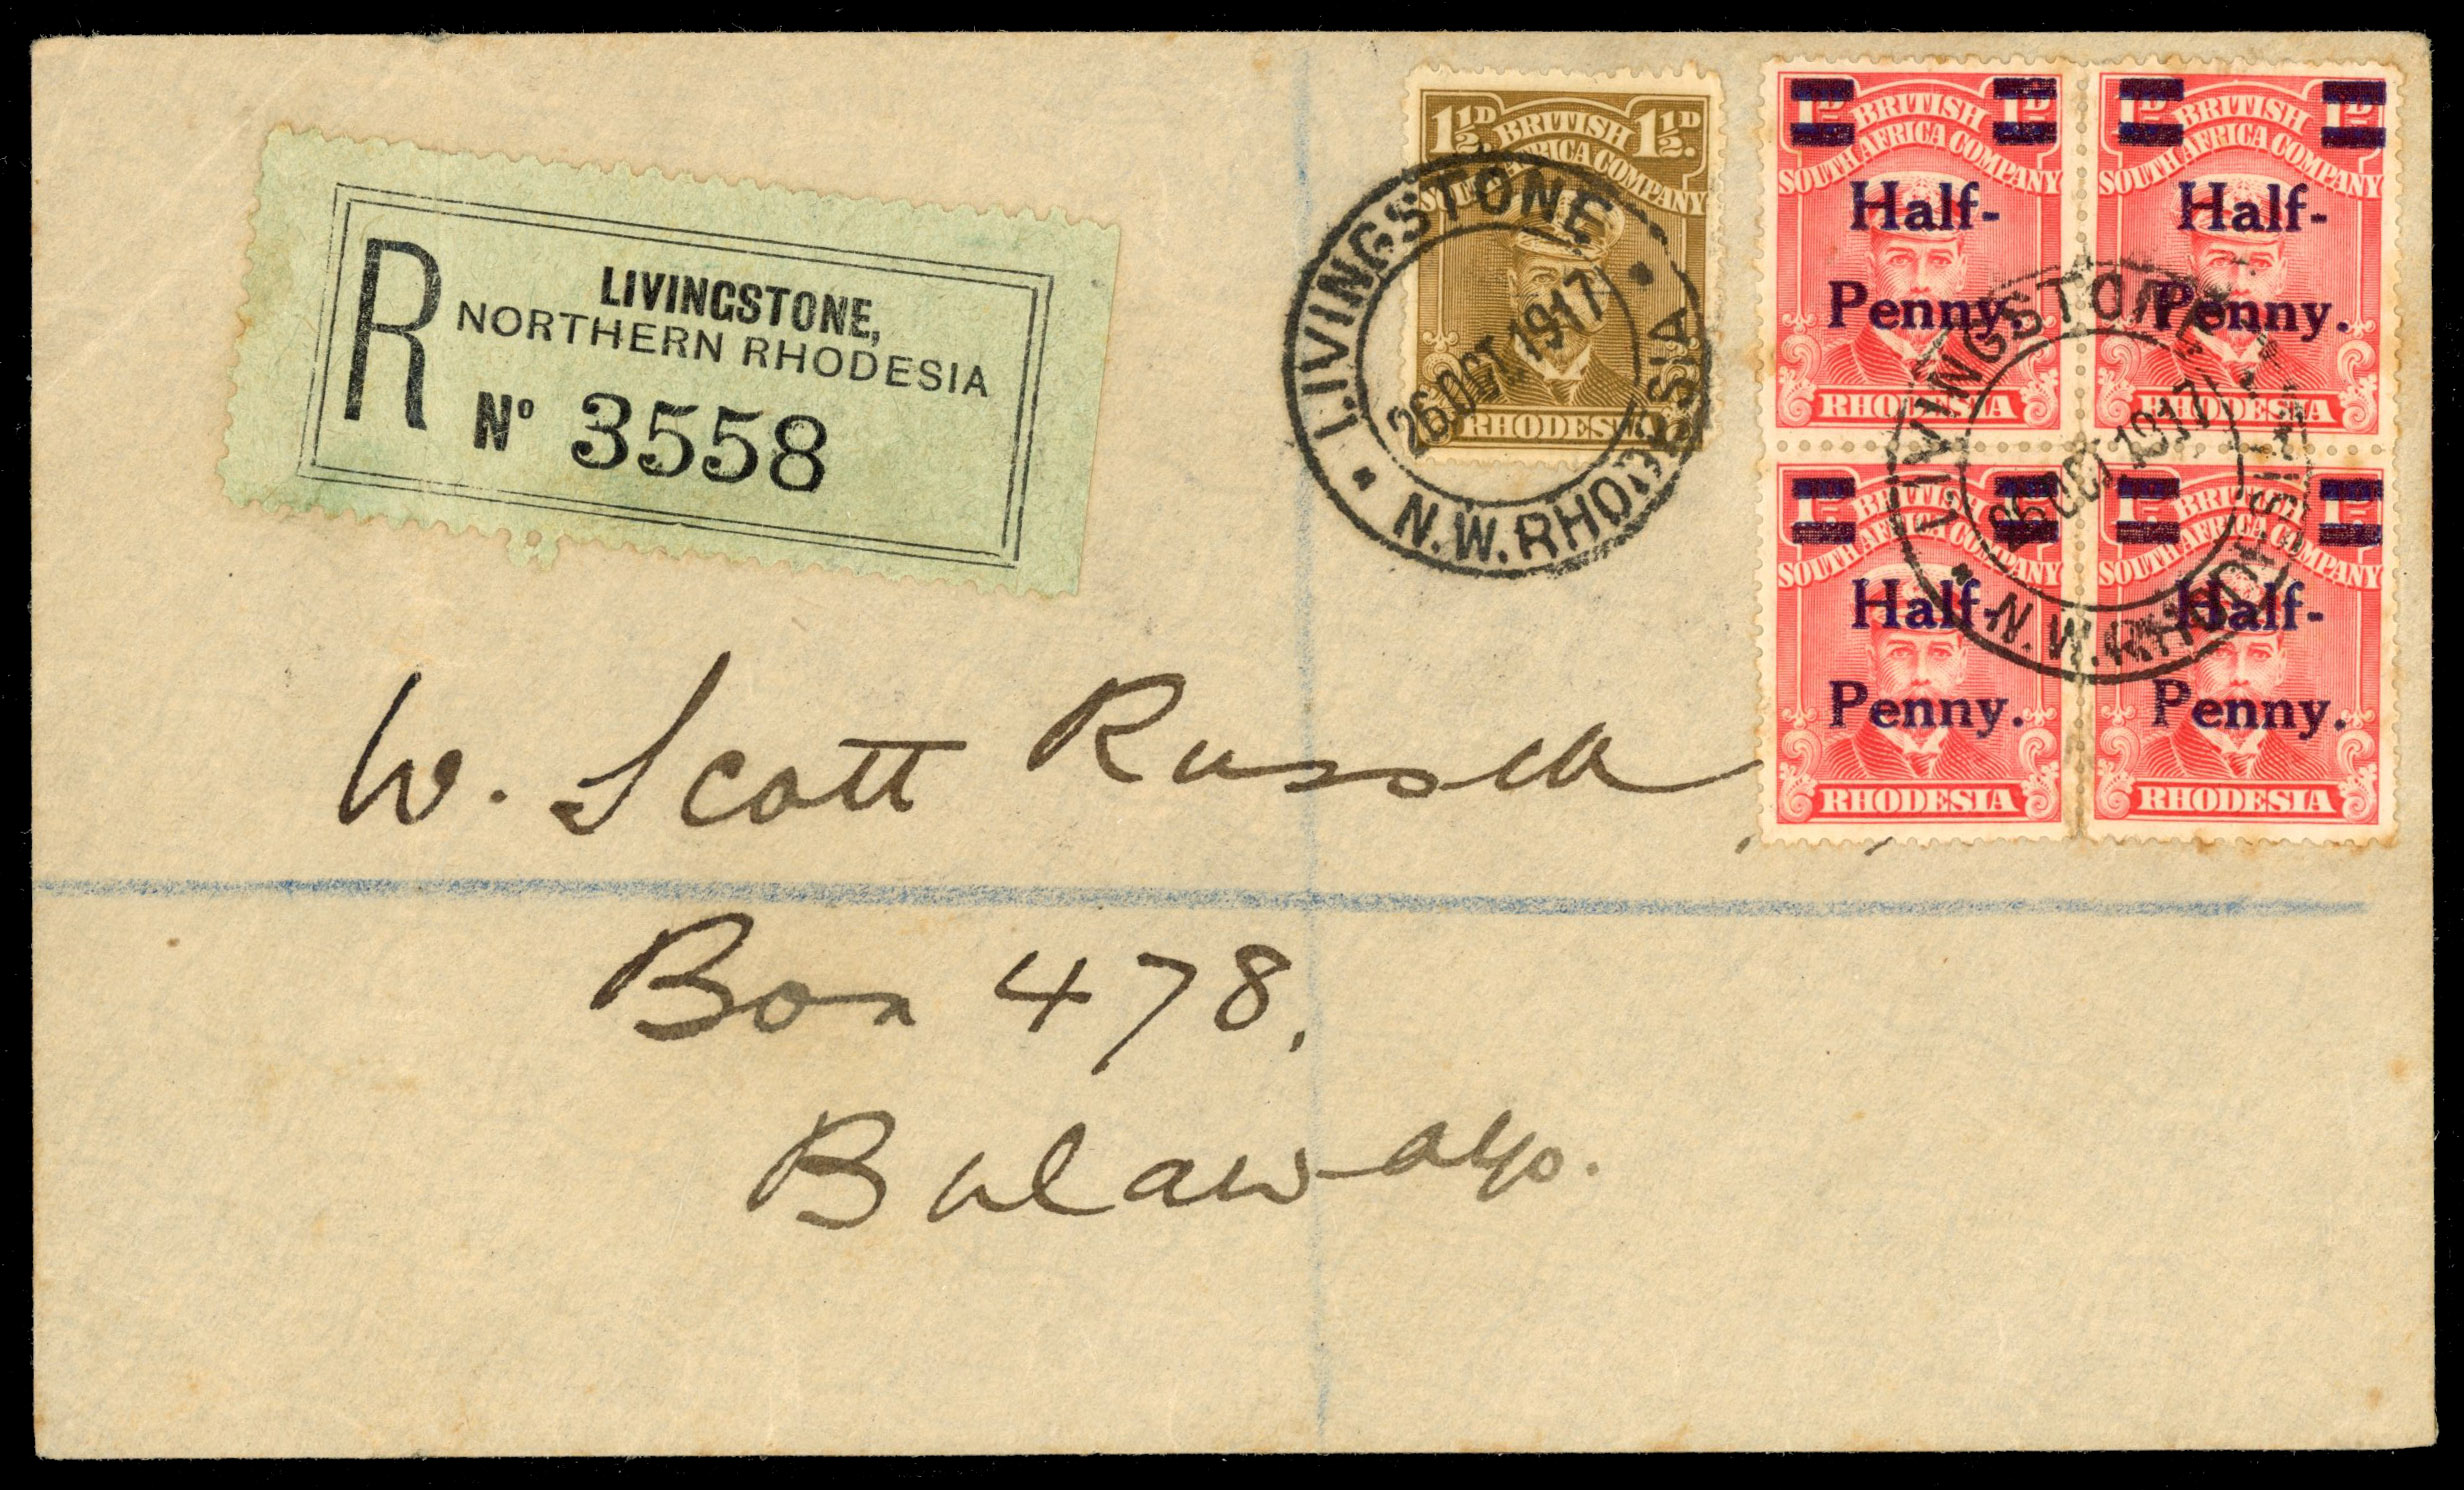 R
LIVINGSTONE,
NORTHERN RHODESIA
Nº 3558
1½D. 1½D.
BRITISH
SOUTH AFRICA COMPANY
RHODESIA
LIVINGSTONE
26 OCT 1917
N.W.RHODESIA
1D 1D
BRITISH
SOUTH AFRICA COMPANY
Half-
Penny.
RHODESIA
1D 1D
BRITISH
SOUTH AFRICA COMPANY
Half-
Penny.
RHODESIA
1D 1D
BRITISH
SOUTH AFRICA COMPANY
Half-
Penny.
RHODESIA
1D 1D
BRITISH
SOUTH AFRICA COMPANY
Half-
Penny.
RHODESIA
LIVINGSTONE
26 OCT 1917
N.W.RHODESIA
W. Scott Russell,
Box 478,
Bulawayo.